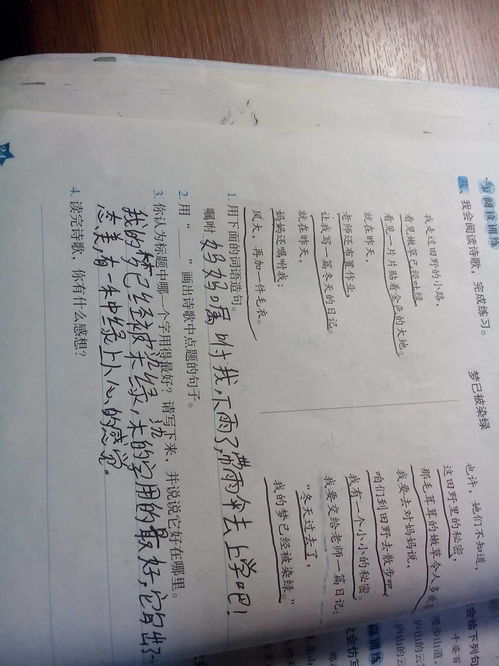 阅读训练
一、我会阅读诗歌，完成练习。
梦已被染绿
我走过田野的小路，
看见嫩草已经吐绿，
看见一片片贴着金色的大地。
就在昨天，
老师还布置作业，
让我写一篇冬天的日记。
就在昨天，
妈妈还嘱咐我：
风大，再加一件毛衣。
也许，她们不知道，
这田野里的秘密，
那毛茸茸的嫩草令人多
我要去对妈妈说，
咱们到田野去散步吧，
我有一个小小的秘密。
我要交给老师一篇日记：
“冬天过去了，
我的梦已经被染绿。”
1. 用下面的词语造句。
嘱咐 妈妈嘱咐我，下雨了，带雨伞去上学吧！
2. 用“——”画出诗歌中点题的句子。
3. 你认为标题中哪一个字用得最好？请写下来，并说说它好在哪里。
我的梦已经被染绿，染的字用的最好，它写出了
态美，有一种绿上人心的感觉。
4. 读完诗歌，你有什么感想？